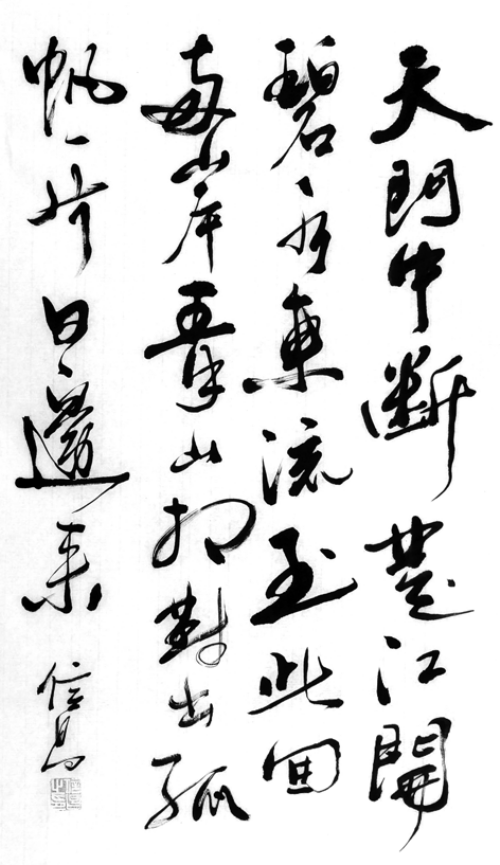 天門中斷楚江開
碧水東流至此回
兩岸青山相對出孤
帆一片日邊來 信